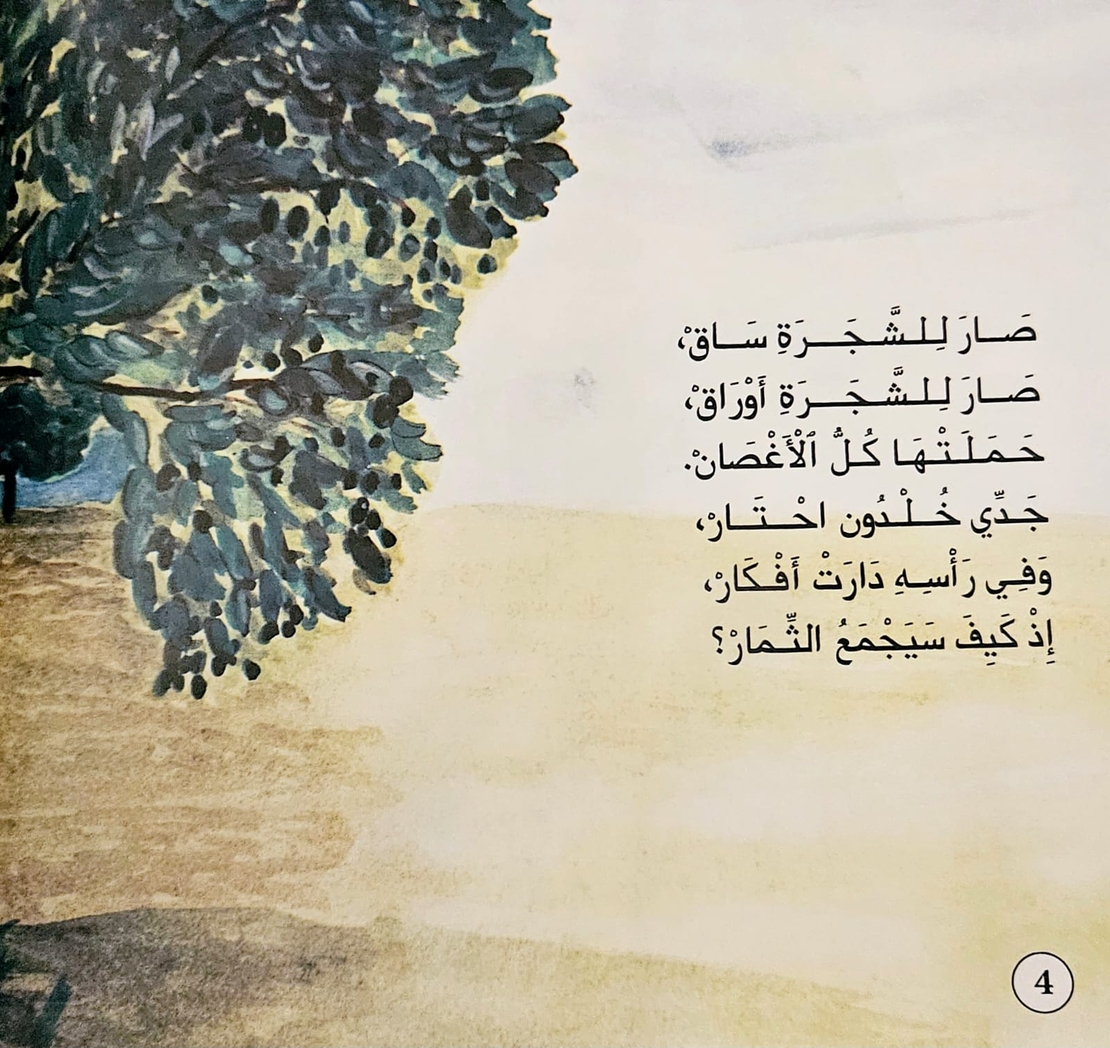 صَارَ لِلشَّجَرَةِ سَاقْ،
صَارَ لِلشَّجَرَةِ أَوْرَاقْ،
حَمَلَتْهَا كُلُّ ٱلْأَغْصَانْ.
جَدِّي خُلْدُون احْتَارْ،
وَفِي رَأْسِهِ دَارَتْ أَفْكَارْ،
إِذْ كَيِفَ سَيَجْمَعُ الثِّمَارْ؟
4